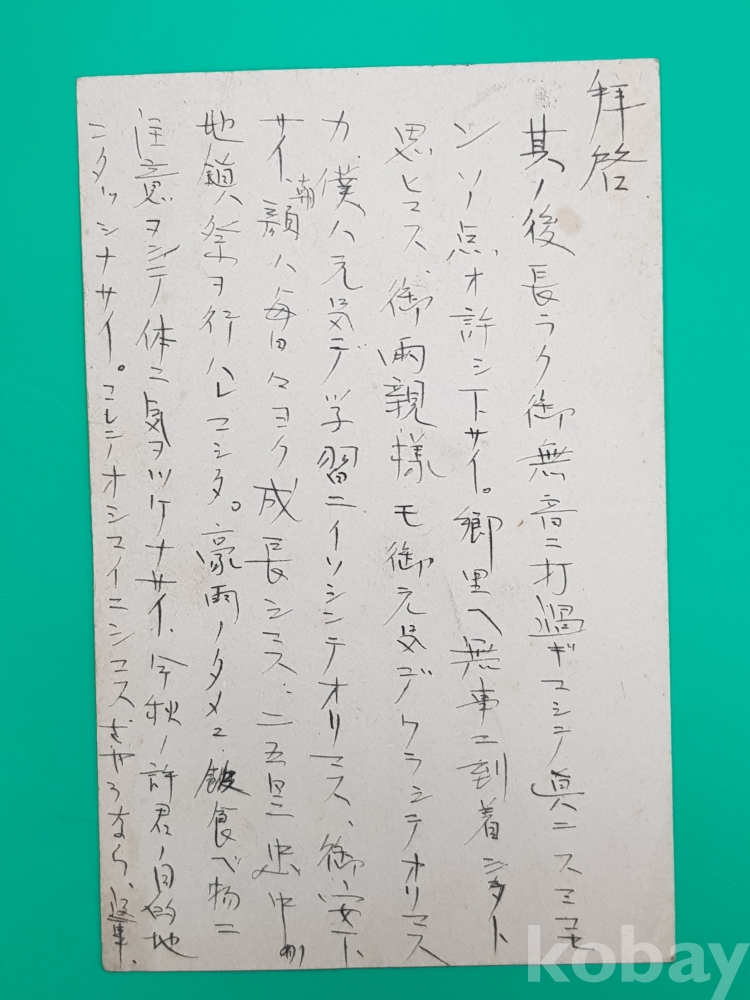 拝啓
其ノ後長ラク御無音ニ打過ギマシテ真ニスミマセ
ンソノ点オ許シ下サイ。郷里ヘ無事ニ到着シタト
思ヒマス、御両親様モ御元気デクラシテオリマス
カ 僕ハ元気デ学習ニイソシンデオリマス、御安下
サイ、朝顔ハ毎日々ヨク成長シマス、二五日
地鎮祭ヲ行ハレマシタ。豪雨ノタメニ 飲食ベ物ニ
注意ヲシテ体ニ気ヲツケナサイ、今秋ノ許君ノ目的地
ニタッシナサイ。コレデオシマイニシマス さやうなら、返事、
kobay